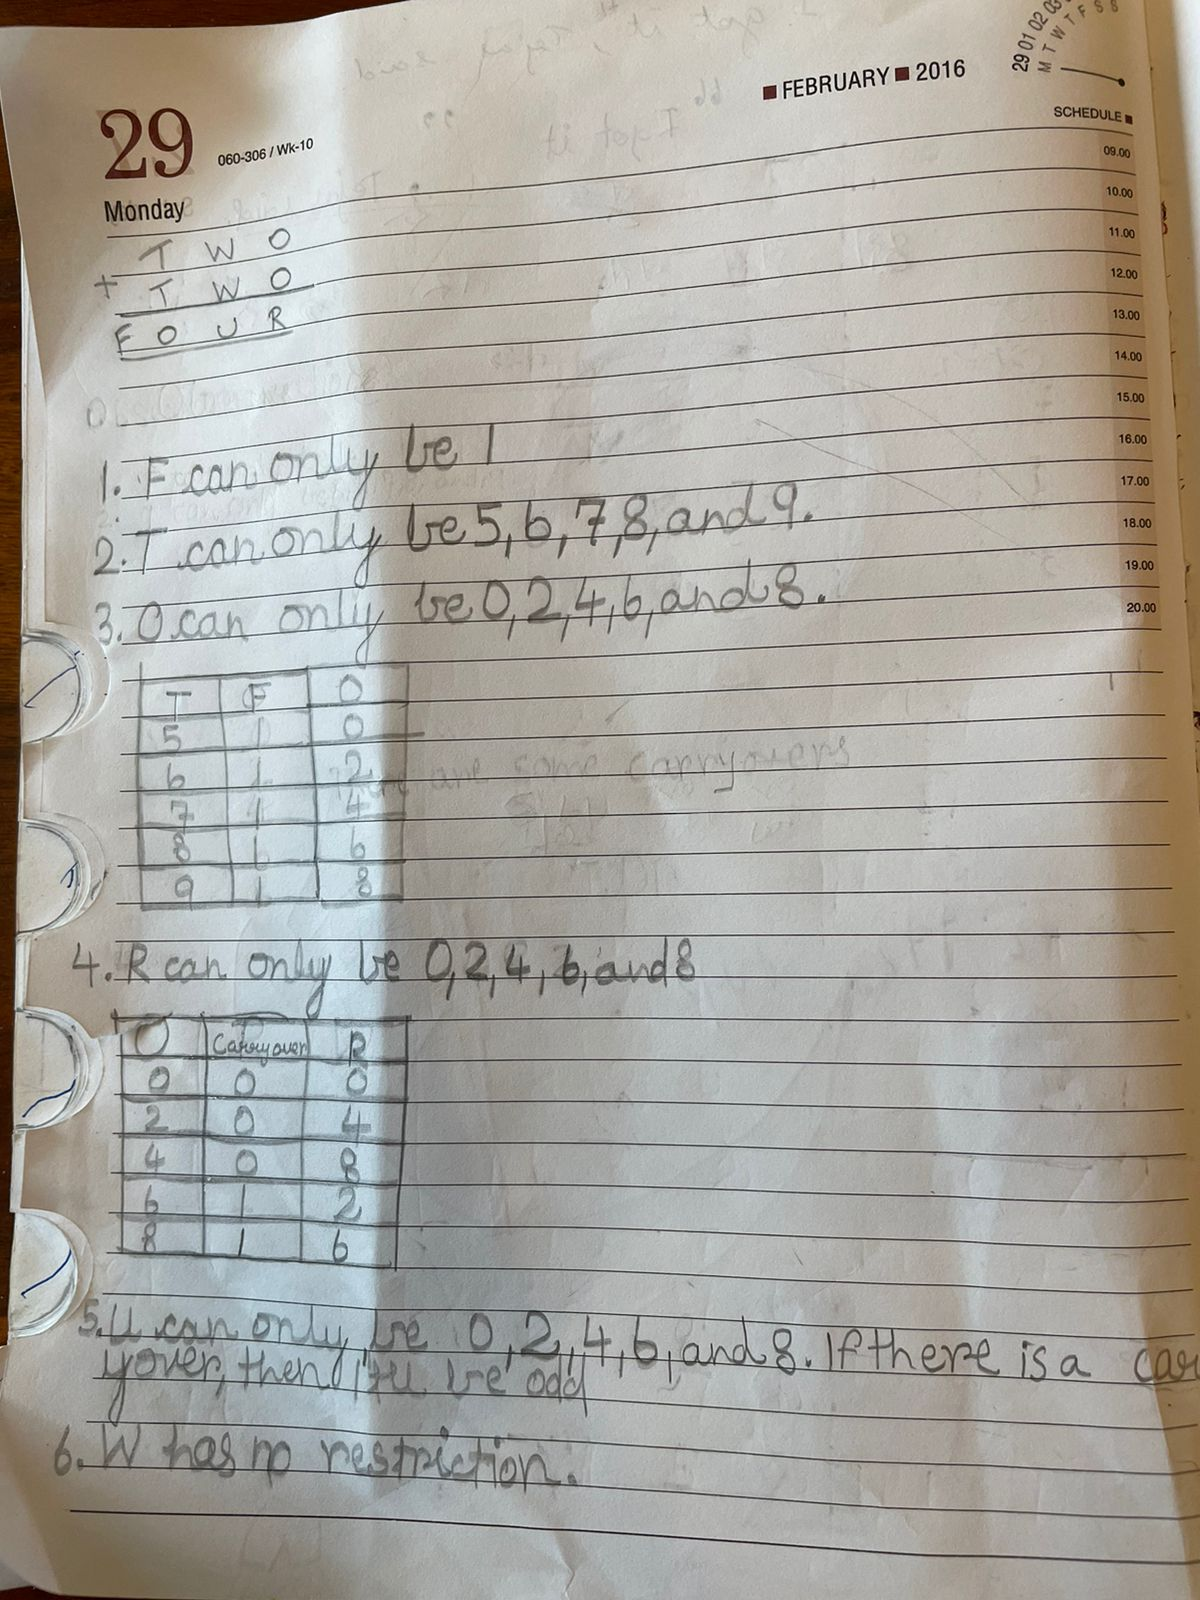 29 01 02 03
M T W T F S S
FEBRUARY 2016
29
060-306 / Wk-10
SCHEDULE
Monday
09.00
10.00
11.00
12.00
13.00
14.00
15.00
16.00
17.00
18.00
19.00
20.00
T W O
+ T W O
F O U R
1. F can only be 1
2. T can only be 5, 6, 7, 8, and 9.
3. O can only be 0, 2, 4, 6, and 8.
T F O
5 1 0
6 1 2
7 1 4
8 1 6
9 1 8
are some carryovers
4. R can only be 0, 2, 4, 6, and 8
O Carryover R
0 0 0
2 0 4
4 0 8
6 1 2
8 1 6
5. U can only be 0, 2, 4, 6, and 8. If there is a car
yover, then it'll be odd
6. W has no restriction.